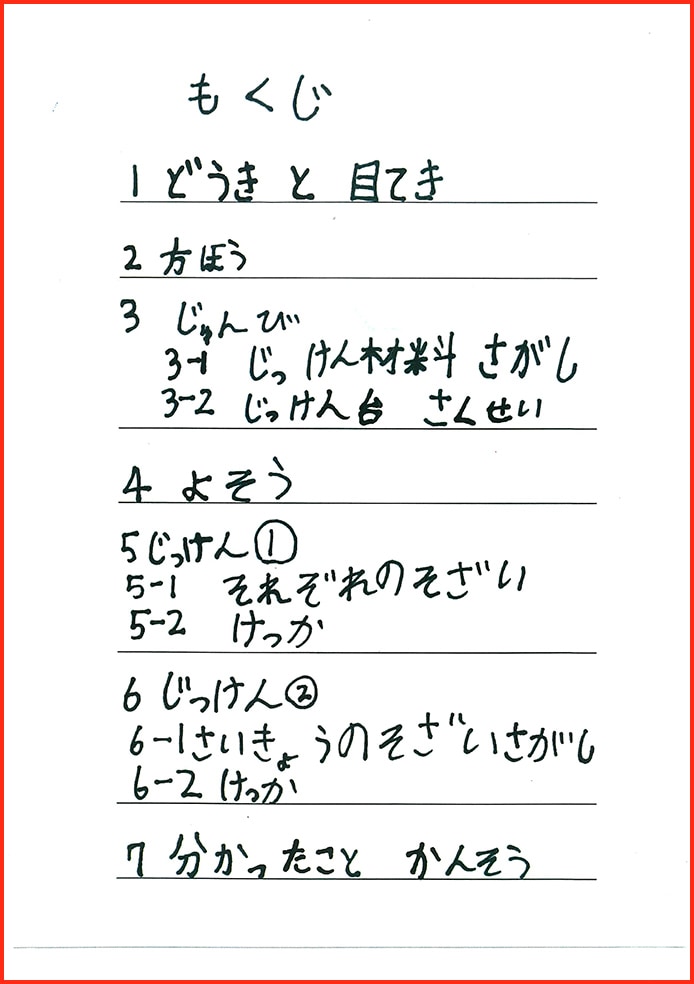 もくじ
1 どうき と 目てき
2 方ほう
3 じゅんび
3-1 じっけん材料 さがし
3-2 じっけん台 さくせい
4 よそう
5 じっけん①
5-1 それぞれのそざい
5-2 けっか
6 じっけん②
6-1 さいきょうのそざいさがし
6-2 けっか
7 分かったこと かんそう